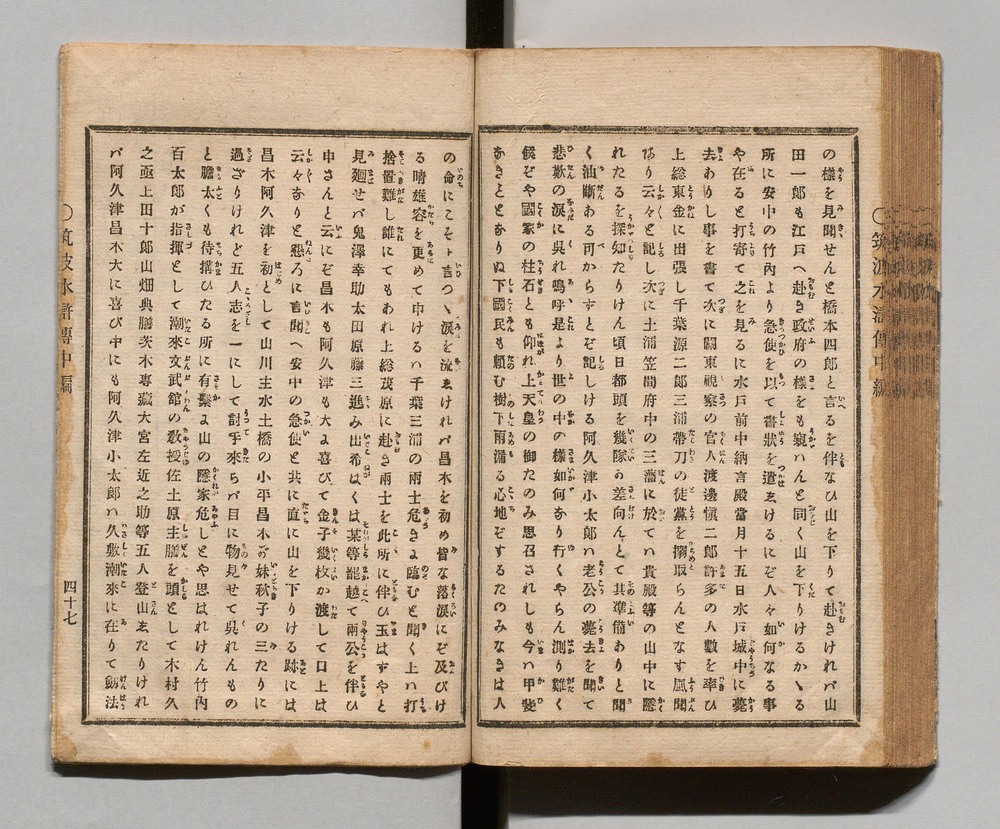 の樣を見聞せんと橋本四郎と言るを伴なひ山を下りて赴きけれバ山
田一郎も江戸へ赴き政府の樣をも窺ハんと同く山を下りけるかゝる
所に安中の竹內より急使を以て書狀を遣ゑけるにぞ人々如何なる事
や在ると打寄て之を見るに水戸前中納言殿當月十五日水戸城中に薨
去あり し事を書て次に關東視察の官人渡邊愼二郎許多の人數を率ひ
上総東金に出張し千葉源二郎三浦帶刀の徒黨を搦取らんとなす風聞
あり云々と記し次に土浦笠間府中の三藩に於てハ貴殿等の山中に隱
れたるを探知たりけん頃日都頭を幾隊か差向んとて其準備ありと聞
く油斷ある可からずとぞ記しける阿久津小太郎ハ老公の薨去を聞て
悲歎の淚に呉れ嗚呼是より世の中の樣如何あり行くやらん測り難く
候ぞや國家の柱石とも仰れ上天皇の御たのみ思召されしも今ハ甲斐
あきことゝありぬ下國民も賴む樹下雨漏る心地ぞするたのみなきは人
の命にこそト言つゝ淚を流ゑけれバ昌木を初め皆な落淚にぞ及びけ
る晴雄容を更めて申けるハ千葉三浦の兩士危きよ臨むと聞く上ハ打
捨置難し誰にてもあれ上総茂原に赴き兩士を此所に伴ひ玉はずやと
見廻せバ鬼澤幸助太田原藤三進み出希はくは某等罷越て兩公を伴ひ
申さんと云にぞ昌木も阿久津も大よ喜びて金子幾枚か渡して口上は
云々ありと懇ろに言聞へ安中の急使と共に直に山を下りける跡には
昌木阿久津を初として山川主水土橋の小平昌木が妹秋子の三たりに
過ざりけれど五人志を一にして討手來らバ目に物見せて呉れんもの
と膽太くも待搆ひたる所に有繫よ山の隱家危しとや思はれけん竹內
百太郎が指揮として潮來文武館の敎授佐土原主膳を頭として木村久
之亟上田十郎山畑典膳茨木專藏大宮左近之助等五人登山ゑたりけれ
バ阿久津昌木大に喜び中にも阿久津小太郎ハ久敷潮來に在りて劔法
〇筑波水滸傳中編
四十七
〇筑波水滸傳中編